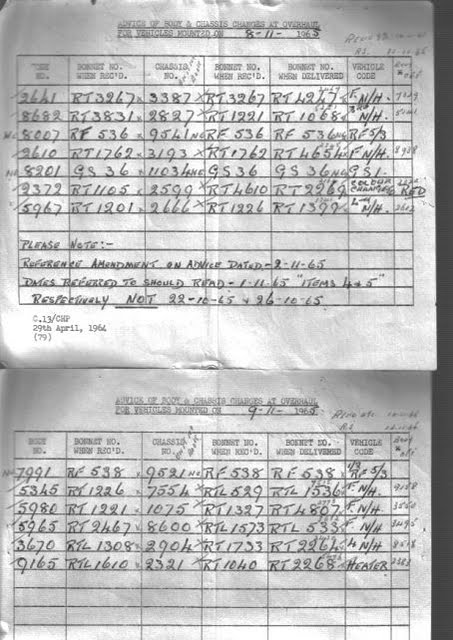 ADVICE OF BODY & CHASSIS CHANGES AT OVERHAUL
FOR VEHICLES MOUNTED ON 8-11- 1965
BODY NO. BONNET NO. WHEN REC'D. CHASSIS NO. BONNET NO. WHEN REC'D. BONNET NO. WHEN DELIVERED VEHICLE CODE
2641 RT3267 3387 RT3267 RT4277 F. N/H.
8682 RT3831 2827 RT1221 RT1068 N/H.
8007 RF 536 9541 NC RF 536 RF 536 NC RF 5/3
2610 RT1762 3193 RT1762 RT4654 F. N/H.
8201 GS 36 11034 NC GS 36 GS 36 NC GS1.
2372 RT1105 2599 RT4610 RT2269 COLOUR CHANGE RED
5967 RT1201 2666 RT1226 RT1399 N/H. 2602
PLEASE NOTE:-
REFERENCE AMENDMENT ON ADVICE DATED - 2-11-65
DATES REFERRED TO SHOULD READ - 1-11-65 "ITEMS 4 & 5"
RESPECTIVELY NOT 22-10-65 & 26-10-65
C.13/CHP
29th April, 1964
(79)
ADVICE OF BODY & CHASSIS CHANGES AT OVERHAUL
FOR VEHICLES MOUNTED ON 9-11- 1965
BODY NO. BONNET NO. WHEN REC'D. CHASSIS NO. BONNET NO. WHEN REC'D. BONNET NO. WHEN DELIVERED VEHICLE CODE
7991 RF 538 9521 NC RF 538 RF 538 RF 5/3
5345 RT1226 7554 RTL 529 RTL 1536 F. N/H.
5980 RT1221 1075 RT1327 RT4807 F. N/H.
5965 RT2467 8600 RTL1573 RTL 533 F. N/H.
3670 RTL1308 2904 RT1733 RT2264 N/H.
9165 RTL1610 2321 RT1040 RT2268 HEATER